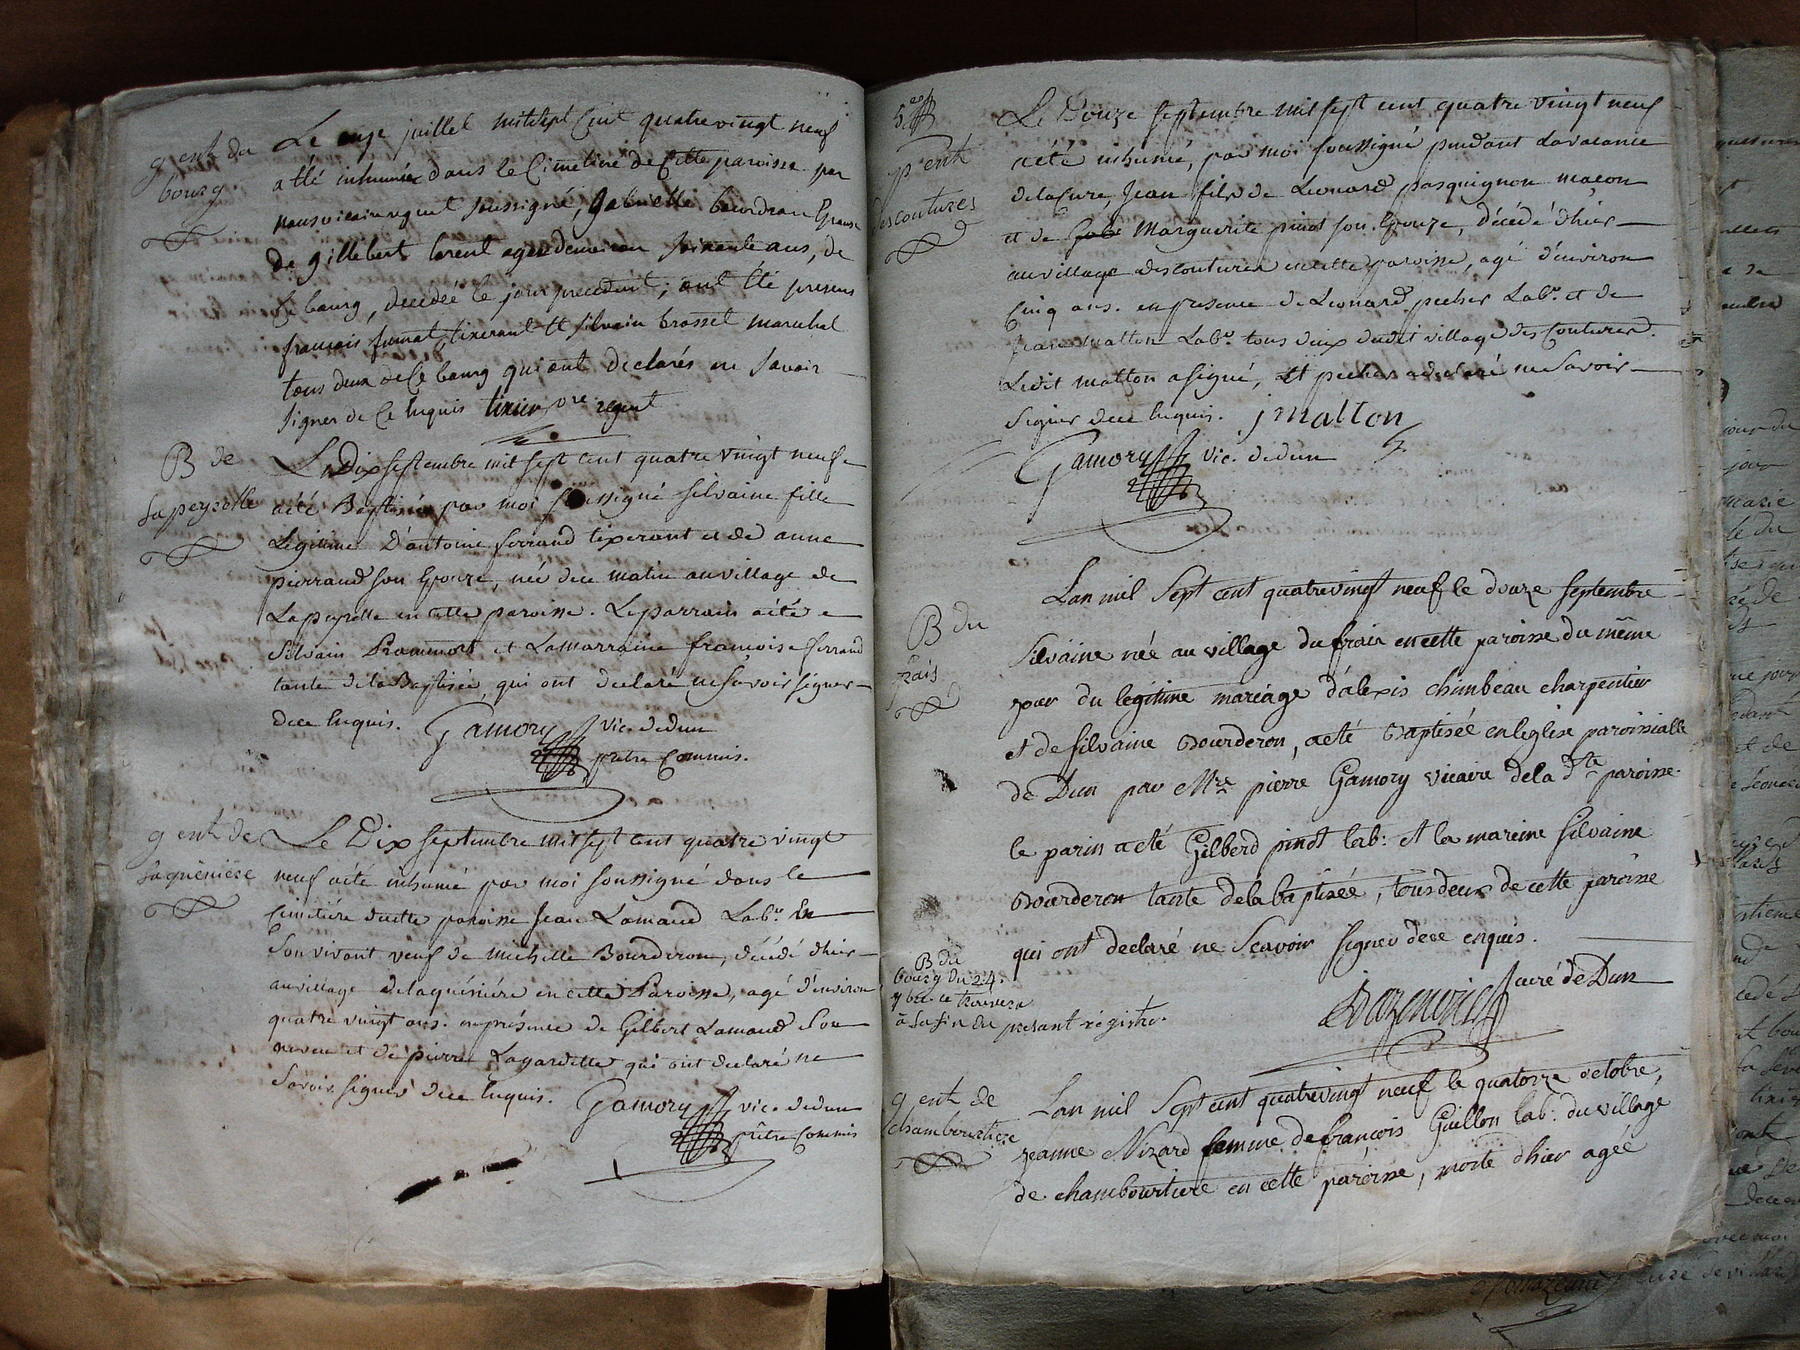 g. enht du
bourg
Le onze juillet mil sept Cent quatre vingt neuf
a été inhumée dans le Cimetiere de Cette paroisse par
nous vicaire regent soussigné, Gabrielle bourdron Epouse
de gillebert lorent agée denviron soixante ans, de
Ce bourg, decedée le jour precedent; ont été presens
francois fumat, tixerant et silvain brosset marechal
tous deux de Ce bourg qui ont declarés ne savoir
signer de Ce Enquis tixier ptre regent
B de
Lapeyrolle
Le Dix septembre mil sept cent quatre vingt neuf
a été Baptisée par moi soussigné silvaine fille
Legitime D'antoine ferrand tixerant et de anne
pierraud son Epouze, née dece matin au village de
Lapeyrolle en cette paroisse. Le parrain a été
Silvain et La marraine francoise ferrand
tante de la Baptisée, qui ont declaré ne savoir signer
dece Enquis. Gamory vic. de dun
prêtre Commis.
g enht de
Laquénière
Le Dix septembre mil sept cent quatre vingt
neuf a été inhumé par moi soussigné dans le
cimetière de cette paroisse Jean Lamaud Labr. En
Son vivant veuf de michelle Bourderon, décédé d'hier
au village delaquénière en cette Paroisse, agé d'environ
quatre vingt ans. en présence de Gilbert Lamaud son
neveu et de pierre Lagardette qui ont declaré ne
Savoir signer dece Enquis. Gamory vic. de dun
prêtre Commis
5e
p enht
des coutures
Le Douze septembre mil sept cent quatre vingt neuf
a été inhumé, par moi soussigné pendant la vacance
dela Cure, Jean fils de Leonard pasquignon maçon
et de Marguerite pinot son Epouze, décédé d'hier
au village des coutures en cette paroisse, agé d'environ
Cinq ans. en presence de Leonard pecher Labr. et de
jean matton Labr. tous deux dudit village des Coutures.
Ledit matton a signé, et pecher a declaré ne savoir
signer dece Enquis. j matton
Gamory vic. de dun
B du
frais
Lan mil Sept cent quatrevingt neuf le douze septembre
Silvaine née au village du frais en cette paroisse du même
jour du légitime mariage d'alexis chambeau charpentier
et de silvaine Bourderon, a eté Baptisée en leglise paroissialle
de Dun par Mre pierre Gamory vicaire de la dte paroisse
le parin a eté Gilberd pinot lab: et la mareine silvaine
Bourderon tante de la baptisée, tous deux de cette paroisse
qui ont declaré ne Scavoir signer dece enquis.
curé de Dun
B du
bourg du 24.
7bre se trouvera
à la fin du présant régistre.
g enht de
chambourtiere
Lan mil Sept cent quatrevingt neuf le quatorze octobre,
jeanne Nizard femme de francois Guillon lab: du village
de chambourtiere en cette paroisse, morte d'hier agée